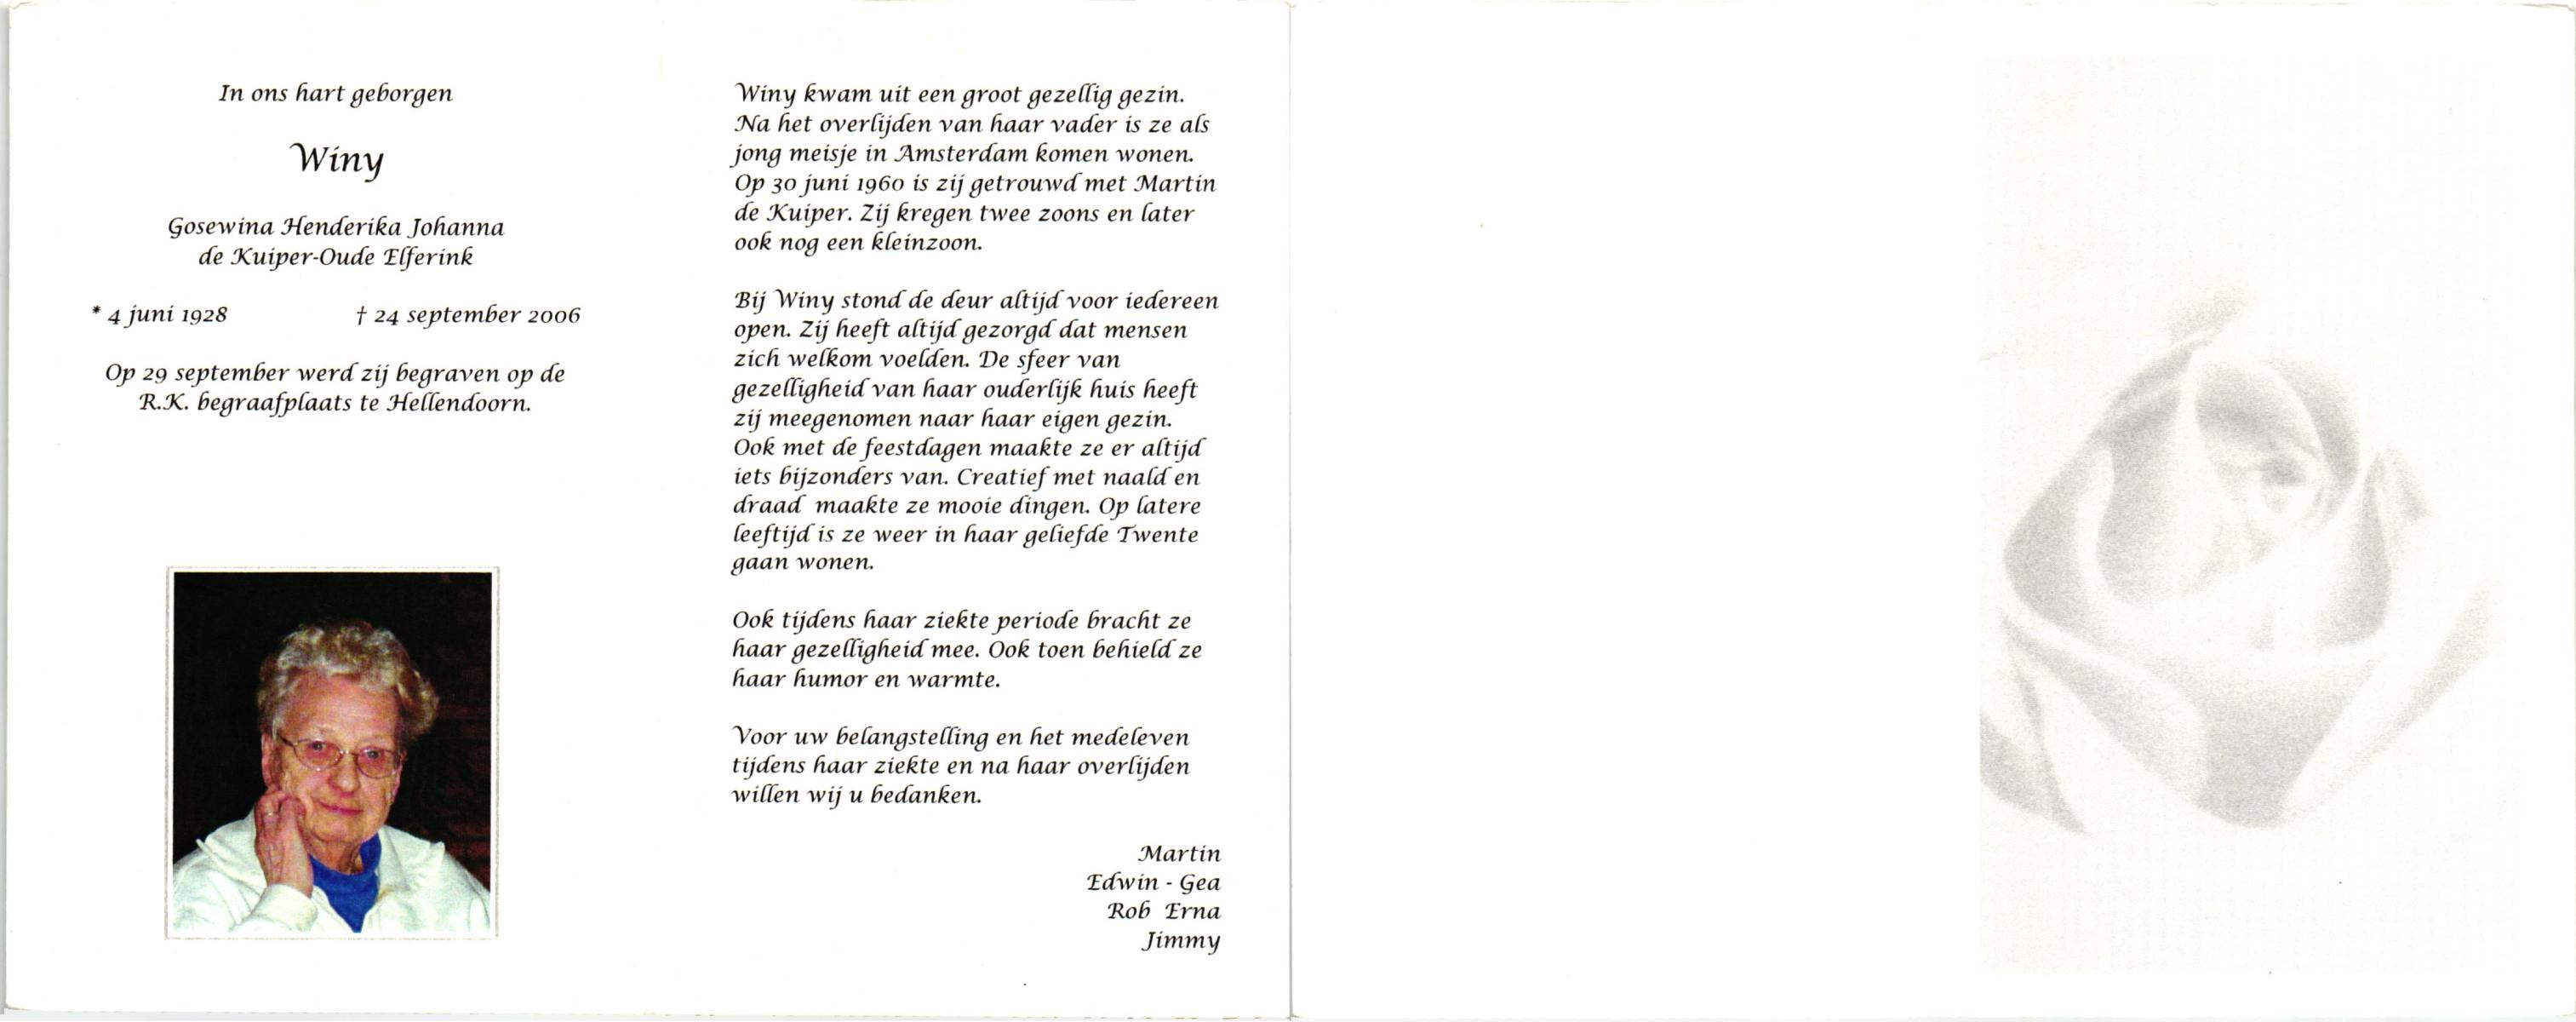 In ons hart geborgen
Winy
Gosewina Henderika Johanna
de Kuiper-Oude Elferink
* 4 juni 1928 † 24 september 2006
Op 29 september werd zij begraven op de
R.K. begraafplaats te Hellendoorn.
Winy kwam uit een groot gezellig gezin.
Na het overlijden van haar vader is ze als
jong meisje in Amsterdam komen wonen.
Op 30 juni 1960 is zij getrouwd met Martin
de Kuiper. Zij kregen twee zoons en later
ook nog een kleinzoon.
Bij Winy stond de deur altijd voor iedereen
open. Zij heeft altijd gezorgd dat mensen
zich welkom voelden. De sfeer van
gezelligheid van haar ouderlijk huis heeft
zij meegenomen naar haar eigen gezin.
Ook met de feestdagen maakte ze er altijd
iets bijzonders van. Creatief met naald en
draad  maakte ze mooie dingen. Op latere
leeftijd is ze weer in haar geliefde Twente
gaan wonen.
Ook tijdens haar ziekte periode bracht ze
haar gezelligheid mee. Ook toen behield ze
haar humor en warmte.
Voor uw belangstelling en het medeleven
tijdens haar ziekte en na haar overlijden
willen wij u bedanken.
Martin
Edwin - Gea
Rob  Erna
Jimmy